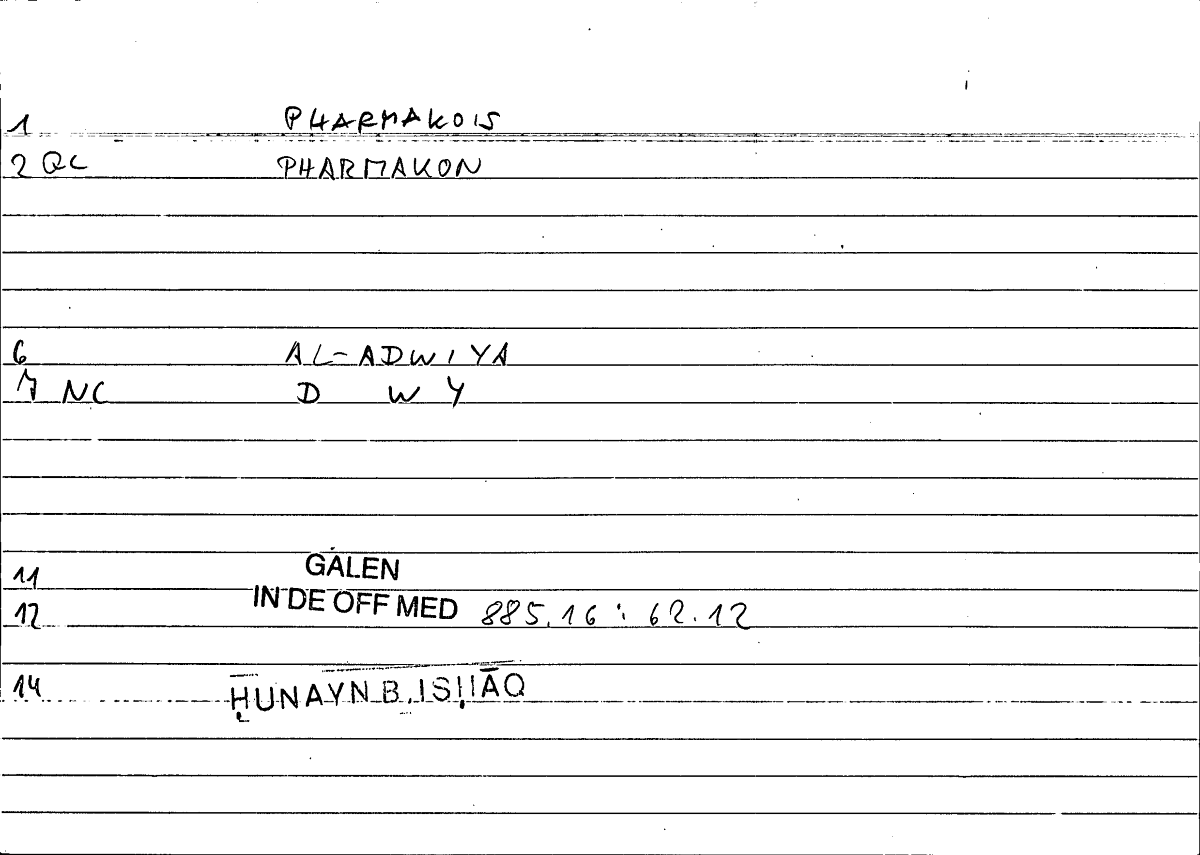 1 PHARMAKOIS
2 QC PHARMAKON
6 AL-ADWIYA
7 NC D W Y
11 GALEN
12 IN DE OFF MED 885.16 : 62.12
14 ḤUNAYN B. ISḤĀQ